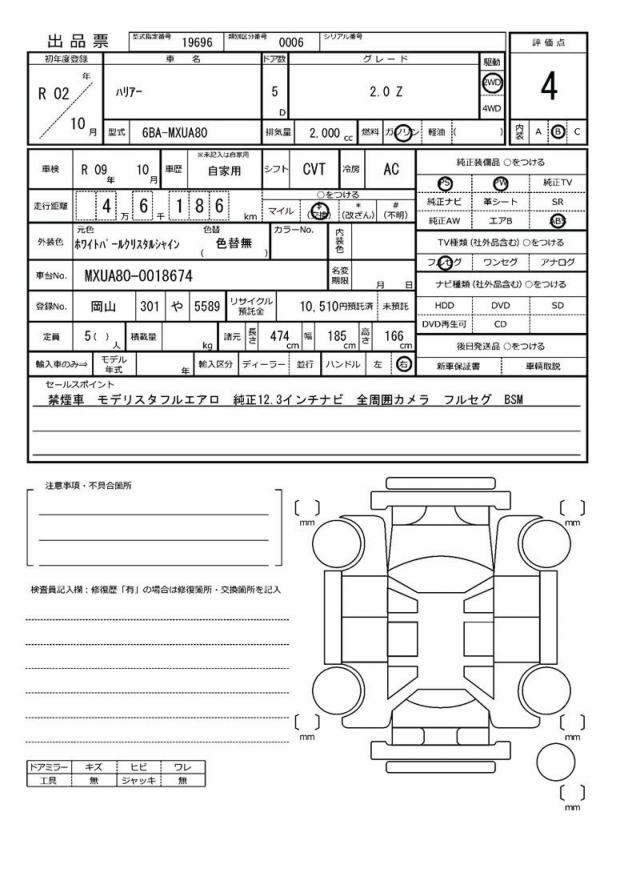 出品票 型式指定番号 19696 類別区分番号 0006 シリアル番号
初年度登録 車名 ドア数 グレード 駆動 評価点
R 02 年 10 月 ハリアー 5 D 2.0 Z 2WD 4WD 4
型式 6BA-MXUA80 排気量 2,000 cc 燃料 ガソリン 軽油 ( ) 内装 A B C
車検 R 09 年 10 月 車歴 ※未記入は自家用 自家用 シフト CVT 冷房 AC
純正装備品 ○をつける
PS PW 純正TV
純正ナビ 革シート SR
純正AW エアB ABS
走行距離 4 万 6 千 1 8 6 km ○をつける マイル $ (交換) * (改ざん) # (不明)
外装色 元色 ホワイトパールクリスタルシャイン 色替 ( 色替無 ) カラーNo. 内装色
TV種類 (社外品含む) ○をつける
フルセグ ワンセグ アナログ
車台No. MXUA80-0018674 名変期限 月 日
ナビ種類 (社外品含む) ○をつける
HDD DVD SD
DVD再生可 CD
登録No. 岡山 301 や 5589 リサイクル預託金 10,510円預託済 未預託
定員 5 ( ) 人 積載量 kg 諸元 長さ 474 cm 幅 185 cm 高さ 166 cm
後日発送品 ○をつける
新車保証書 車輌取説
輸入車のみ⇒ モデル年式 年 輸入区分 ディーラー 並行 ハンドル 左 右
セールスポイント
禁煙車 モデリスタフルエアロ 純正12.3インチナビ 全周囲カメラ フルセグ BSM
注意事項・不具合箇所
検査員記入欄：修復歴「有」の場合は修復箇所・交換箇所を記入
[ ] mm
[ ] mm
[ ] mm
[ ] mm
[ ] mm
ドアミラー キズ ヒビ ワレ
工具 無 ジャッキ 無